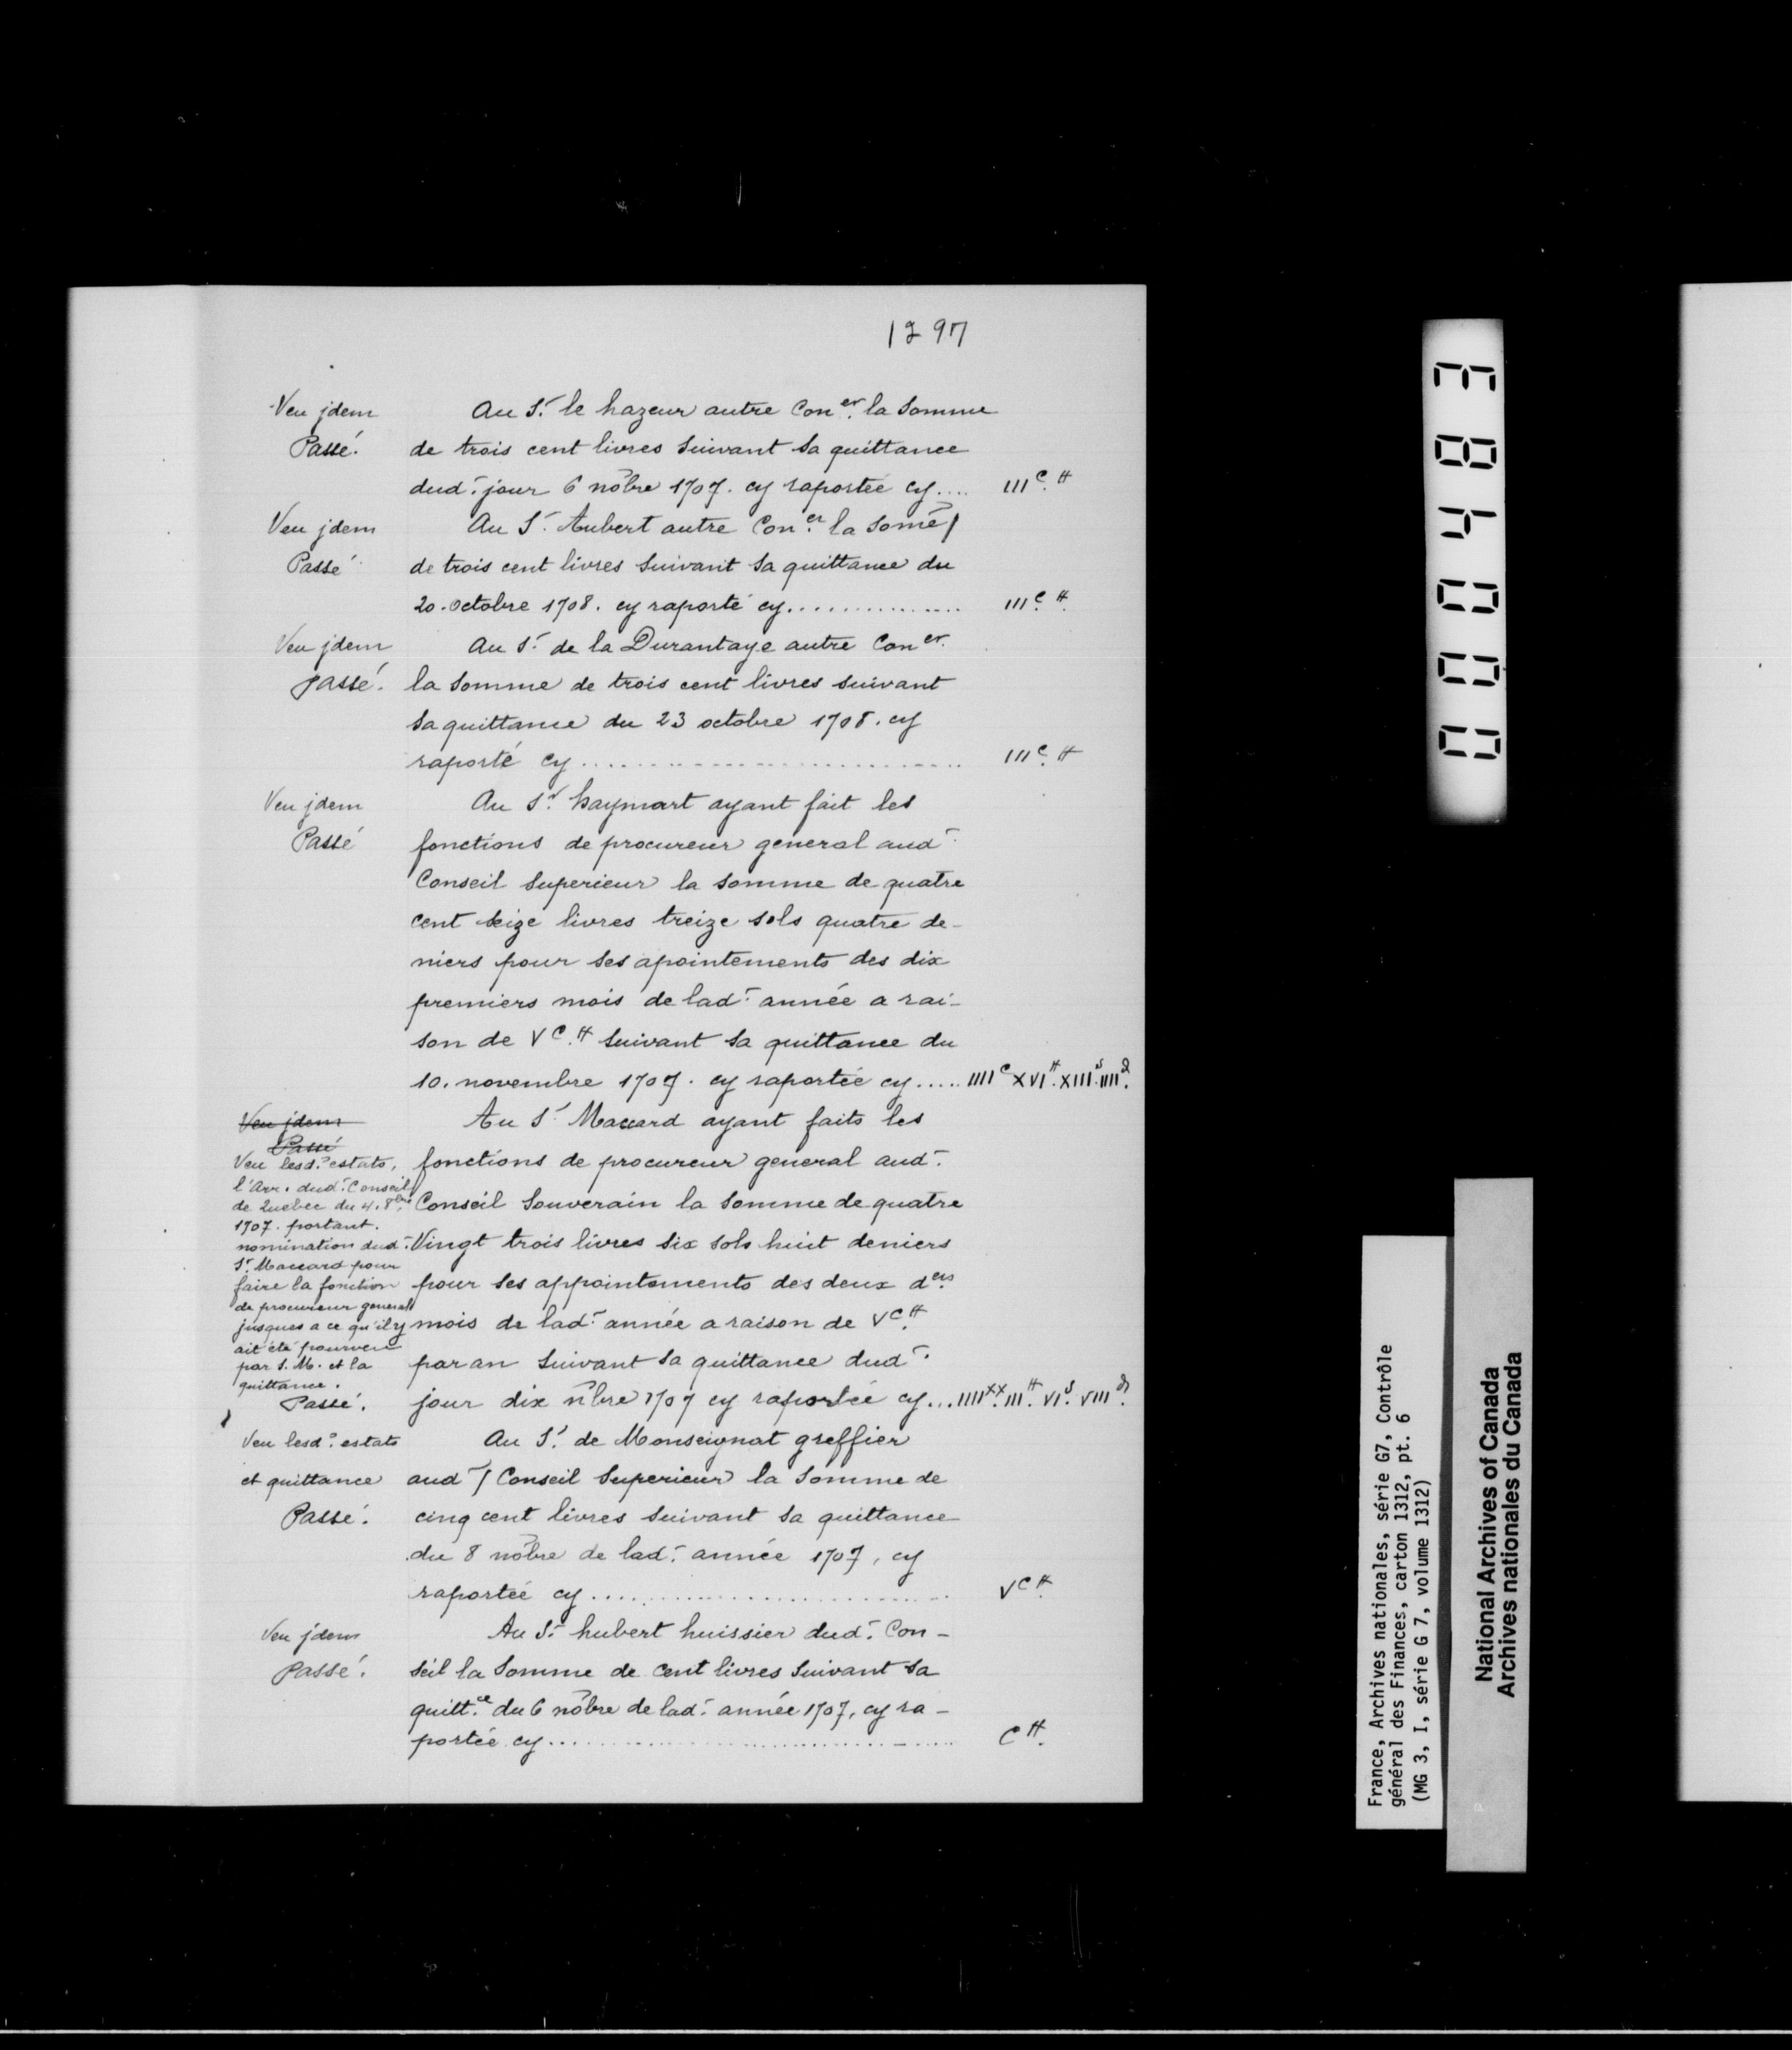 1297
Veu jdem
Passé.
Au Sr. le hazeur autre Coner. la Somme
de trois cent livres suivant sa quittance
dud. jour 6 nõbre 1707. cy raportée cy.... IIIc. ₶
Veu jdem
Passé
Au Sr. Aubert autre Coner. la somẽ
de trois cent livres suivant sa quittance du
20. octobre 1708. cy raporté cy............... IIIc. ₶
Veu jdem
passé.
Au Sr. de la Durantaye autre Coner.
la somme de trois cent livres suivant
sa quittance du 23 octobre 1708. cy
raporté cy........................... IIIc. ₶
Veu jdem
Passé
Au Sr. haymart ayant fait les
fonctions de procureur general aud.
Conseil Superieur la somme de quatre
cent seize livres treize sols quatre de-
niers pour ses apointements des dix
premiers mois de lad. année a rai-
son de Vc. ₶ suivant sa quittance du
10. novembre 1707. cy raportée cy..... IIIIc XVI₶. XIIIs. IIIId.
Veu jdem
Passé
Veu lesd. estats,
l'Arr. dud. Conseil
de Quebec du 4. 8bre
1707. portant.
nomination dud.
Sr. Maccard pour
faire la fonction
de procureur general
jusques a ce qu'il y
ait été pourveu
par S. M. et la
quittance.
Passé.
Au Sr. Maccard ayant faits les
fonctions de procureur general aud.
Conseil Souverain la Somme de quatre
Vingt trois livres six sols huit deniers
pour ses appointements des deux ders.
mois de lad. année a raison de Vc. ₶
par an suivant sa quittance dud.
jour dix n̄bre 1707 cy raportée cy... IIIIxx. III₶. VIs. VIIId.
Veu lesd. estats
et quittance
Passé.
Au Sr. de Monseignat greffier
aud. / Conseil Superieur la Somme de
cinq cent livres suivant sa quittance
du 8 nõbre de lad. année 1707, cy
raportée cy........................... Vc ₶.
Veu jdem
Passé.
Au Sr. hubert huissier dud. Con-
seil la Somme de Cent livres suivant sa
quitt.ce du 6 nõbre de lad. année 1707, cy ra-
portée cy........................... C ₶.
000483
France, Archives nationales, série G7, Contrôle
général des Finances, carton 1312, pt. 6
(MG 3, I, série G 7, volume 1312)
National Archives of Canada
Archives nationales du Canada